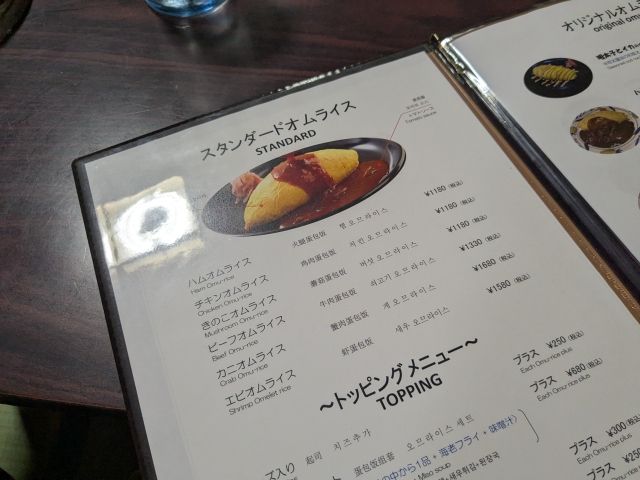 スタンダードオムライス
STANDARD
トマトソース
Tomato sauce
ハムオムライス 火腿蛋包饭 햄 오므라이스 ¥1180 (税込)
Ham Omu-rice
チキンオムライス 鸡肉蛋包饭 치킨 오므라이스 ¥1180 (税込)
Chicken Omu-rice
きのこオムライス 蘑菇蛋包饭 버섯 오므라이스 ¥1180 (税込)
Mushroom Omu-rice
ビーフオムライス 牛肉蛋包饭 쇠고기 오므라이스 ¥1330 (税込)
Beef Omu-rice
カニオムライス 蟹肉蛋包饭 게 오므라이스 ¥1680 (税込)
Crab Omu-rice
エビオムライス 虾蛋包饭 새우 오므라이스 ¥1580 (税込)
Shrimp Omelet rice
～トッピングメニュー～
TOPPING
ズ入り 起司 치즈추가 プラス ¥250 (税込)
Each Omu-rice plus
蛋包饭组套 오므라이스 세트 プラス ¥680 (税込)
Each Omu-rice plus
の中から1品 + 海老フライ + 味噌汁)
Miso soup
새우튀김+된장국
プラス ¥300 (税込)
Each Omu-rice plus
プラス ¥250
Each Omu-rice
オリジナルオム
original om
明太子とイカ